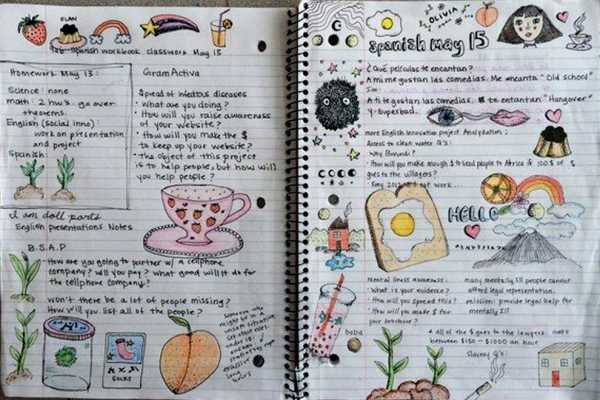 FLAN
Spanish workbook classwork May 15
Homework May 13:
Science: none
math: 2 hw's. go over
theorems.
English (social inno)
work on presentation
and project
Spanish:
GramActiva
Spread of infectious diseases
• What are you doing?
• How will you raise awareness
of this website?
• How will you make the $
to keep up your website?
• The object of this project
is to help people, but how will
you help people?
I am doll parts
English presentations Notes
B.S.A.P
How are you going to partner w/ a cellphone
company? will you pay? What good will it do for
the cellphone company?
won't there be a lot of people missing?
How will you list all of the people?
Someone who
might be in a
unsafe situation
SOCKS
OLIVIA
Spanish may 15
¿Qué películas te encantan?
A mi me gustan las comedias. Me encanta "Old school"
A ti te gustan las comedias. te encantan "Hangover"
Y Superbad.
more English innovation project Analyzation:
Access to clean water G's:
Why Burundi?
• How will you make enough $ to send people to Africa & 100% of $
goes to the villagers?
COCO
HELLO
Mental illness awareness:
• What is your evidence?
• How will you spread this?
• How will you make $ for
your database?
many mentally ill people cannot
afford legal representation.
mission: provide legal help for
mentally ill
boba
& all of the $ goes to the lawyers.
between $150 - $1000 an hour
Slavery G's: